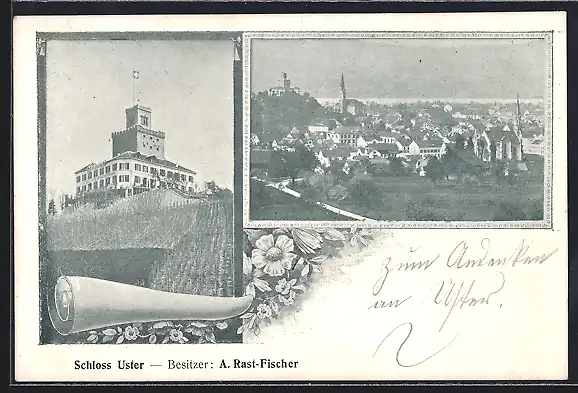 zum Andenken
an Uster.
Schloss Uster — Besitzer: A. Rast-Fischer